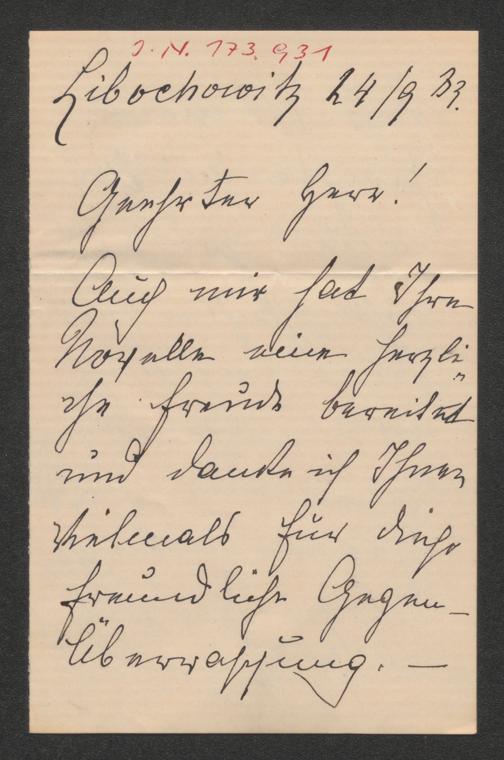 J. N. 173.931
Libochowitz 24/9 83.
Geehrter Herr!
Auch mir hat Ihre
Novelle eine herzli-
che Freude bereitet
und danke ich Ihnen
vielmals für diese
freundliche Gegen-
überraschung. —